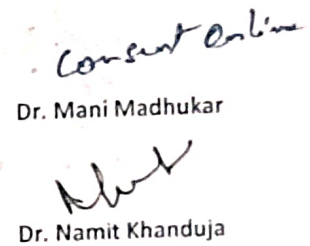 Consent Online
Dr. Mani Madhukar
Dr. Namit Khanduja